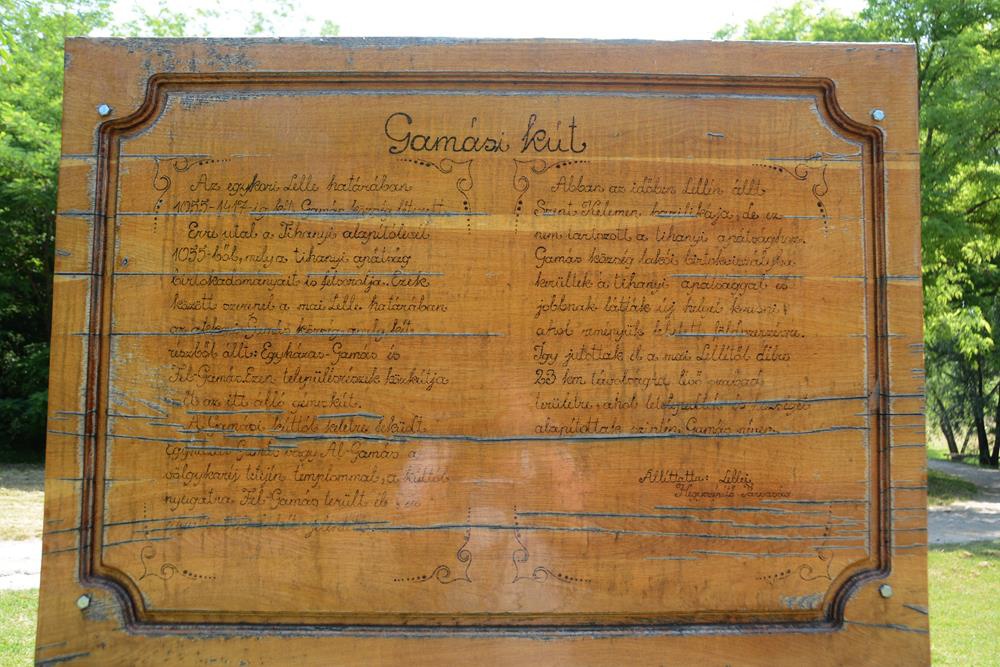 Gamási kút
Az egykori Lelle határában
1055-1417-ig két Gamás község létezett.
Erre utal a Tihanyi alapítólevél
1055-ből, mely a tihanyi apátság
birtokadományait is felsorolja. Ezek
között szerepel a mai Lelle határában
az Gamás község, amely két
részből állt: Egyházas-Gamás és
Fel-Gamás. Ezen településrészek közkútja
volt az itt álló gémeskút.
A Gamási kúttól keletre feküdt
Egyházas Gamás vagy Al-Gamás a
völgykaréj tetején templommal, a kúttól
nyugatra Fel-Gamás terült el
Abban az időben Lellén állt
Szent Kelemen bazilikája, de ez
nem tartozott a tihanyi apátsághoz.
Gamás község lakói birtokviszályba
kerültek a tihanyi apátsággal és
jobbnak látták új helyet keresni,
ahol reményük lehetett
Így jutottak el a mai Lellétől délre
23 km távolságra lévő szabad
területre, ahol letelepedtek és községet
alapítottak szintén Gamás néven.
Állíttatta: Lellei
Hegyközség